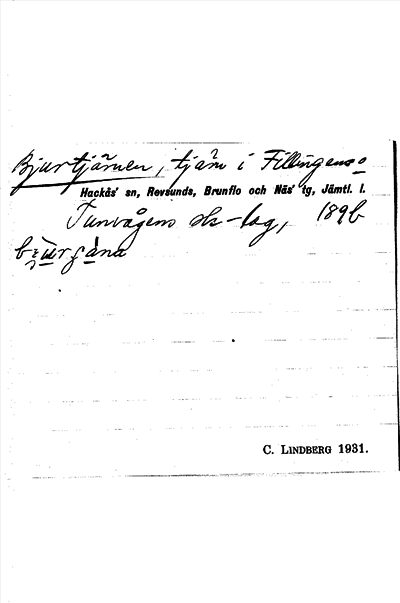 Bjurtjärnen, tjärn i Fillingens o
Hackås' sn, Revsunds, Brunflo och Näs' tg, Jämtl. l.
Tunvågens sks-lag, 189b
C. LINDBERG 1931.